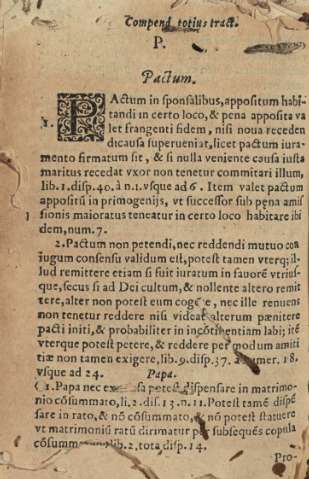 Compend. totius tract.
P.
Pactum.
1. PActum in sponsalibus, appositum habi
tandi in certo loco, & pena apposita va
let frangenti fidem, nisi noua receden
di causa superueniat, licet pactum iura-
mento firmatum sit, & si nulla veniente causa iusta
maritus recedat vxor non tenetur commitari illum,
lib. 1. disp. 40. à n. 1. vsque ad 6. Item valet pactum
appositũ in primogenijs, vt successor sub pena amis
sionis maioratus teneatur in certo loco habitare ibi
dem, num. 7.
2. Pactum non petendi, nec reddendi mutuo con
iugum consensu validum est, potest tamen vterq; il-
lud remittere etiam si fuit iuratum in fauorẽ vtrius-
que, secus si ad Dei cultum, & nollente altero remit
tere, alter non potest eum cogere, nec ille renuens
non tenetur reddere nisi videat alterum pœnitere
pacti initi, & probabiliter in incõtinentiam labi; itẽ
vterque potest petere, & reddere per modum amici
tiæ non tamen exigere, lib. 9. disp. 37. à numer. 18.
vsque ad 24.
Papa.
1. Papa nec ex causa potest dispensare in matrimo-
nio cõsummato, li. 2. dis. 13. n. 11. Potest tamẽ dispẽ
sare in rato, & nõ cõsummato, & nõ potest statuere
vt matrimoniũ ratũ dirimatur per subsequẽs copula
cõsum lib. 2. tota disp. 14.
Pro-